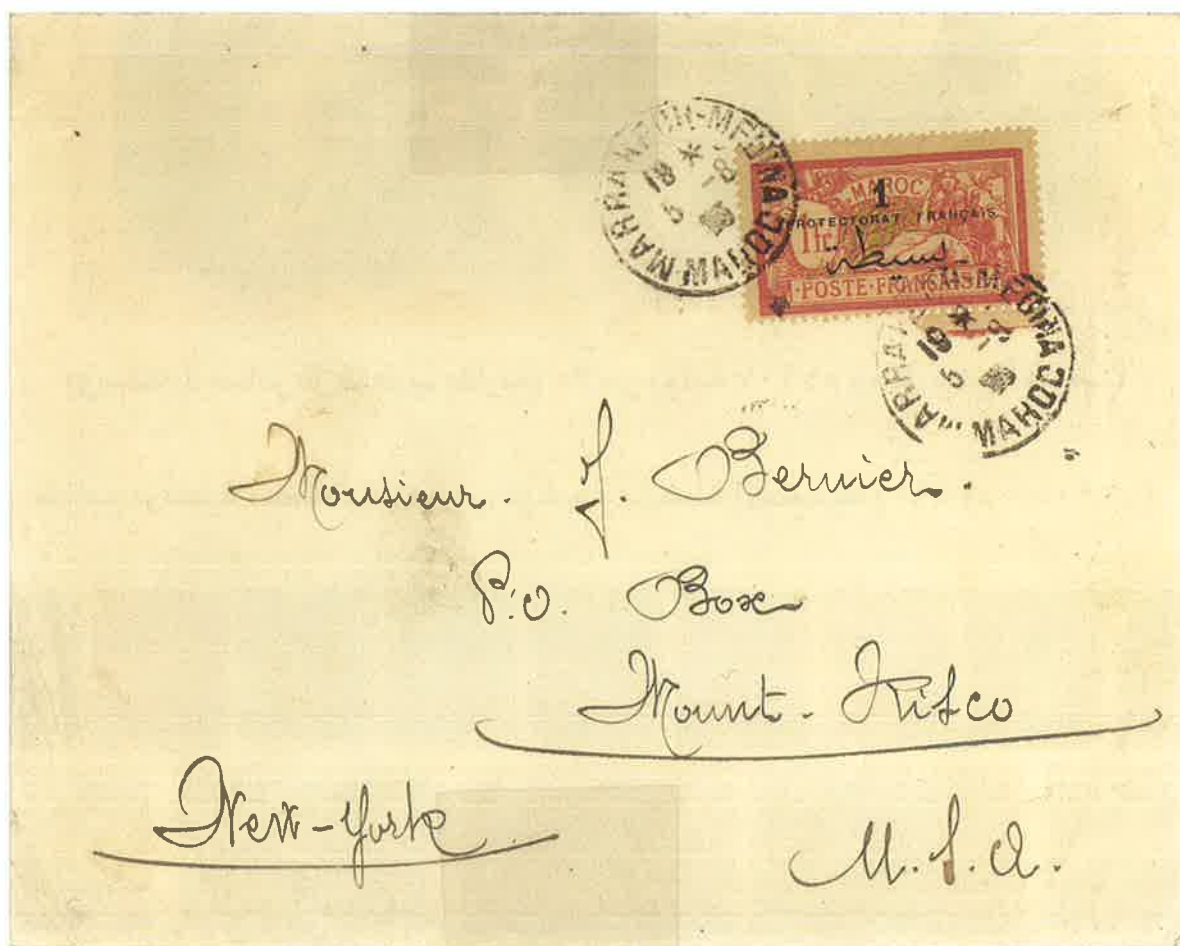 MARRAKECH-MEDINA
MAROC
MAROC
1
PROTECTORAT FRANÇAIS
1fc
POSTE FRANÇAISE
MEDINA
MAROC
Monsieur. J. Bernier.
P.O. Box
Mount-Kisco
New-York
U.S.A.